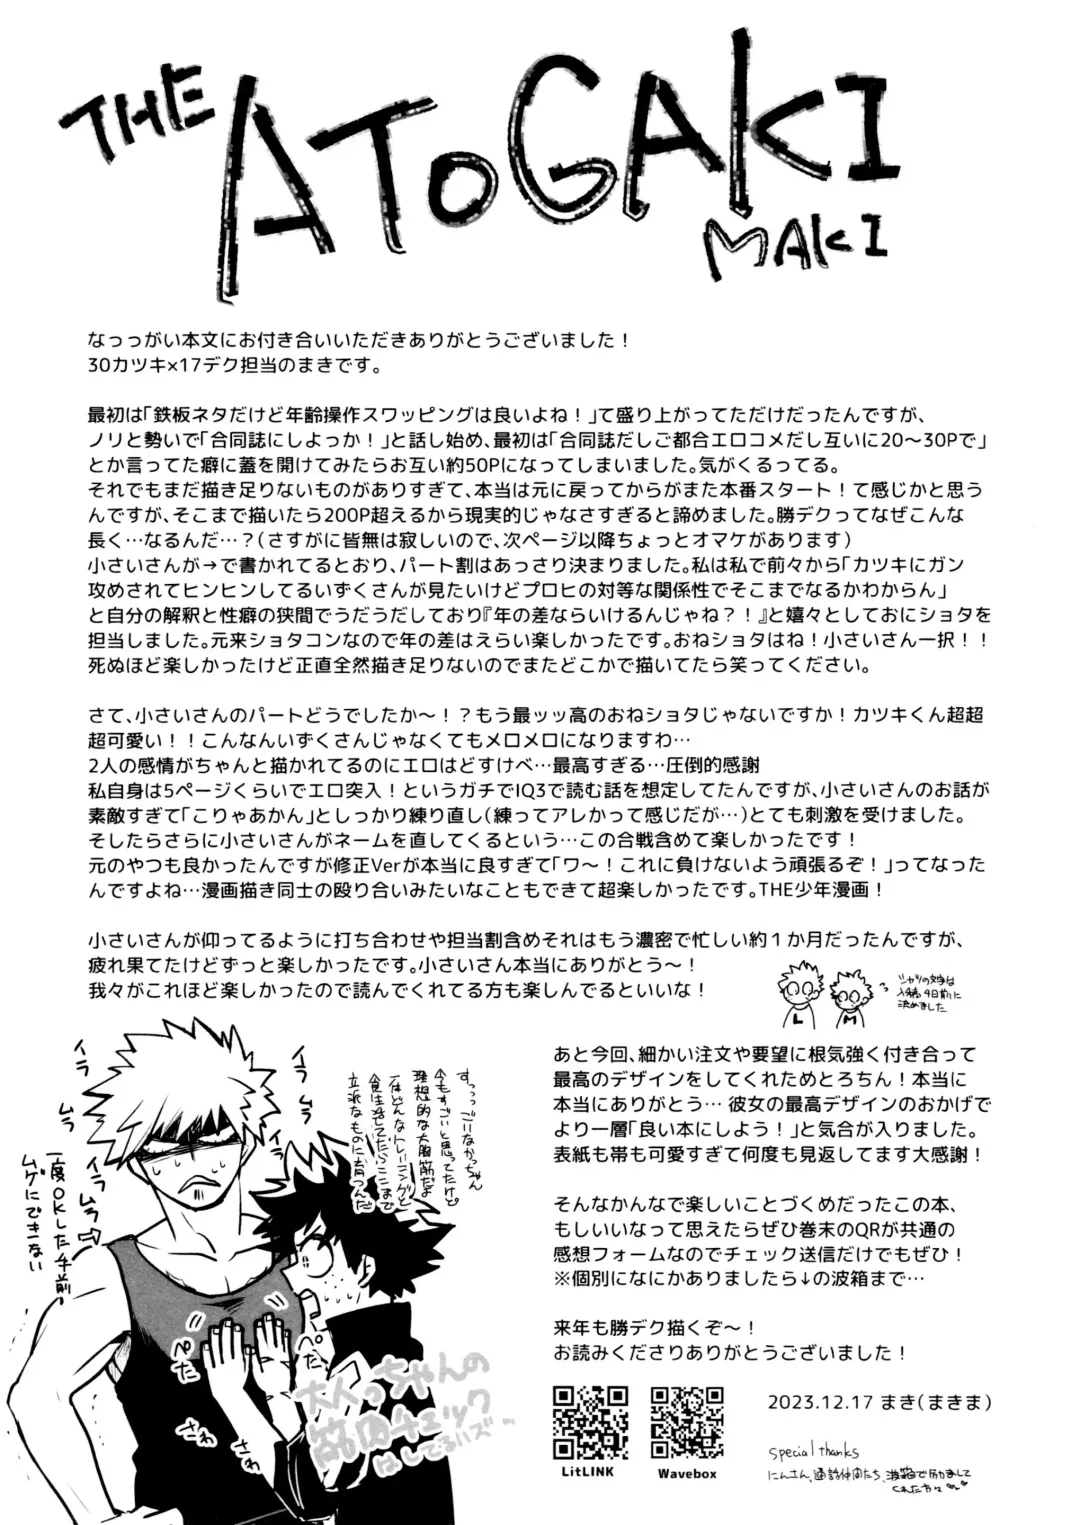 THE ATOGAKI
MAKI
なっっがい本文にお付き合いいただきありがとうございました！
30カツキ×17デク担当のまきです。
最初は「鉄板ネタだけど年齢操作スワッピングは良いよね！」て盛り上がってただけだったんですが、
ノリと勢いで「合同誌にしよっか！」と話し始め、最初は「合同誌だしご都合エロコメだし互いに20～30Pで」
とか言ってた癖に蓋を開けてみたらお互い約50Pになってしまいました。気がくるってる。
それでもまだ描き足りないものがありすぎて、本当は元に戻ってからがまた本番スタート！て感じかと思う
んですが、そこまで描いたら200P超えるから現実的じゃなさすぎると諦めました。勝デクってなぜこんな
長く…なるんだ…？（さすがに皆無は寂しいので、次ページ以降ちょっとオマケがあります）
小さいさんが→で書かれてるとおり、パート割はあっさり決まりました。私は私で前々から「カツキにガン
攻めされてヒンヒンしてるいずくさんが見たいけどプロヒの対等な関係性でそこまでなるかわからん」
と自分の解釈と性癖の狭間でうだうだしており『年の差ならいけるんじゃね？！』と嬉々としておにショタを
担当しました。元来ショタコンなので年の差はえらい楽しかったです。おねショタはね！小さいさん一択！！
死ぬほど楽しかったけど正直全然描き足りないのでまたどこかで描いてたら笑ってください。
さて、小さいさんのパートどうでしたか～！？もう最ッッ高のおねショタじゃないですか！カツキくん超超
超可愛い！！こんなんいずくさんじゃなくてもメロメロになりますわ…
2人の感情がちゃんと描かれてるのにエロはどすけべ…最高すぎる…圧倒的感謝
私自身は5ページくらいでエロ突入！というガチでIQ3で読む話を想定してたんですが、小さいさんのお話が
素敵すぎて「こりゃあかん」としっかり練り直し（練ってアレかって感じだが…）とても刺激を受けました。
そしたらさらに小さいさんがネームを直してくるという…この合戦含めて楽しかったです！
元のやつも良かったんですが修正Verが本当に良すぎて「ワ～！これに負けないよう頑張るぞ！」ってなった
んですよね…漫画描き同士の殴り合いみたいなこともできて超楽しかったです。THE少年漫画！
小さいさんが仰ってるように打ち合わせや担当割含めそれはもう濃密で忙しい約１か月だったんですが、
疲れ果てたけどずっと楽しかったです。小さいさん本当にありがとう～！
我々がこれほど楽しかったので読んでくれてる方も楽しんでるといいな！
L
M
シャツの文字は
入稿4日前に
決めました
あと今回、細かい注文や要望に根気強く付き合って
最高のデザインをしてくれためとろちん！本当に
本当にありがとう… 彼女の最高デザインのおかげで
より一層「良い本にしよう！」と気合が入りました。
表紙も帯も可愛すぎて何度も見返してます大感謝！
そんなかんなで楽しいことづくめだったこの本、
もしいいなって思えたらぜひ巻末のQRが共通の
感想フォームなのでチェック送信だけでもぜひ！
※個別になにかありましたら↓の波箱まで…
来年も勝デク描くぞ～！
お読みくださりありがとうございました！
LitLINK
Wavebox
2023.12.17 まき（まきま）
special thanks
にんさん、通話仲間たち、波箱で励まして
くれた方々
イラ
イラ
ムラ
ムラ
イラ
イラ
ムラ
一度OKした手前
ムゲにできない
すっっっごいなかっちゃん
今もすごいと思ってたけど
理想的な大胸筋だよ
一体どんなトレーニングと
食生活をしてたらここまで
立派なものに育つんだ
ぺた
ぺた
さわ
さわ
大人っちゃんの
筋肉チェック
はしてるハズ…